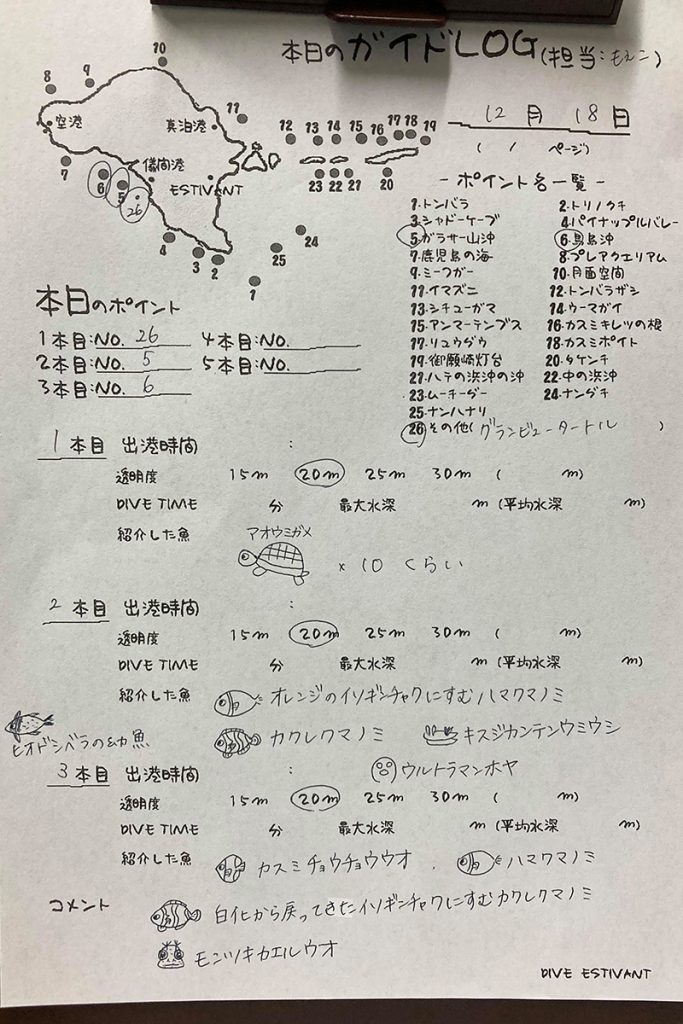 本日のガイドLOG(担当:もえこ)
12月 18日
( / ページ)
10
8
9
空港
真泊港
11
12 13 14 15 16 17 18 19
7
儀間港
ESTIVANT
6 5 26
23 22 21 20
4 3 2
24
25
1
- ポイント名一覧 -
1.トンバラ 2.トリノクチ
3.シャドーケーブ 4.パイナップルバレー
5.ガラサー山沖 6.島島沖
7.鹿児島の海 8.プレアクエリアム
9.ミーフガー 10.月面空間
11.イマズニ 12.トンバラザシ
13.シチューガマ 14.ウーマガイ
15.アンマーテンプス 16.カスミキレツの根
17.リュウグウ 18.カスミポイト
19.御願崎灯台 20.タケンチ
21.ハテの浜沖の沖 22.中の浜沖
23.ムーチーダー 24.ナングチ
25.ナンハナリ
26.その他(グランビュータートル)
本日のポイント
1本目:NO. 26 4本目:NO.
2本目:NO. 5 5本目:NO.
3本目:NO. 6
1 本目 出港時間 :
透明度 15m 20m 25m 30m ( m)
DIVE TIME 分 最大水深 m (平均水深 m)
紹介した魚 アオウミガメ
×10 くらい
2 本目 出港時間 :
透明度 15m 20m 25m 30m ( m)
DIVE TIME 分 最大水深 m (平均水深 m)
紹介した魚 オレンジのイソギンチャクにすむハマクマノミ
ヒオドシベラの幼魚 カクレクマノミ キスジカンテンウミウシ
ウルトラマンホヤ
3 本目 出港時間 :
透明度 15m 20m 25m 30m ( m)
DIVE TIME 分 最大水深 m (平均水深 m)
紹介した魚 カスミチョウチョウウオ . ハマクマノミ
コメント 白化から戻ってきたイソギンチャクにすむカクレクマノミ
モンツキカエルウオ
DIVE ESTIVANT